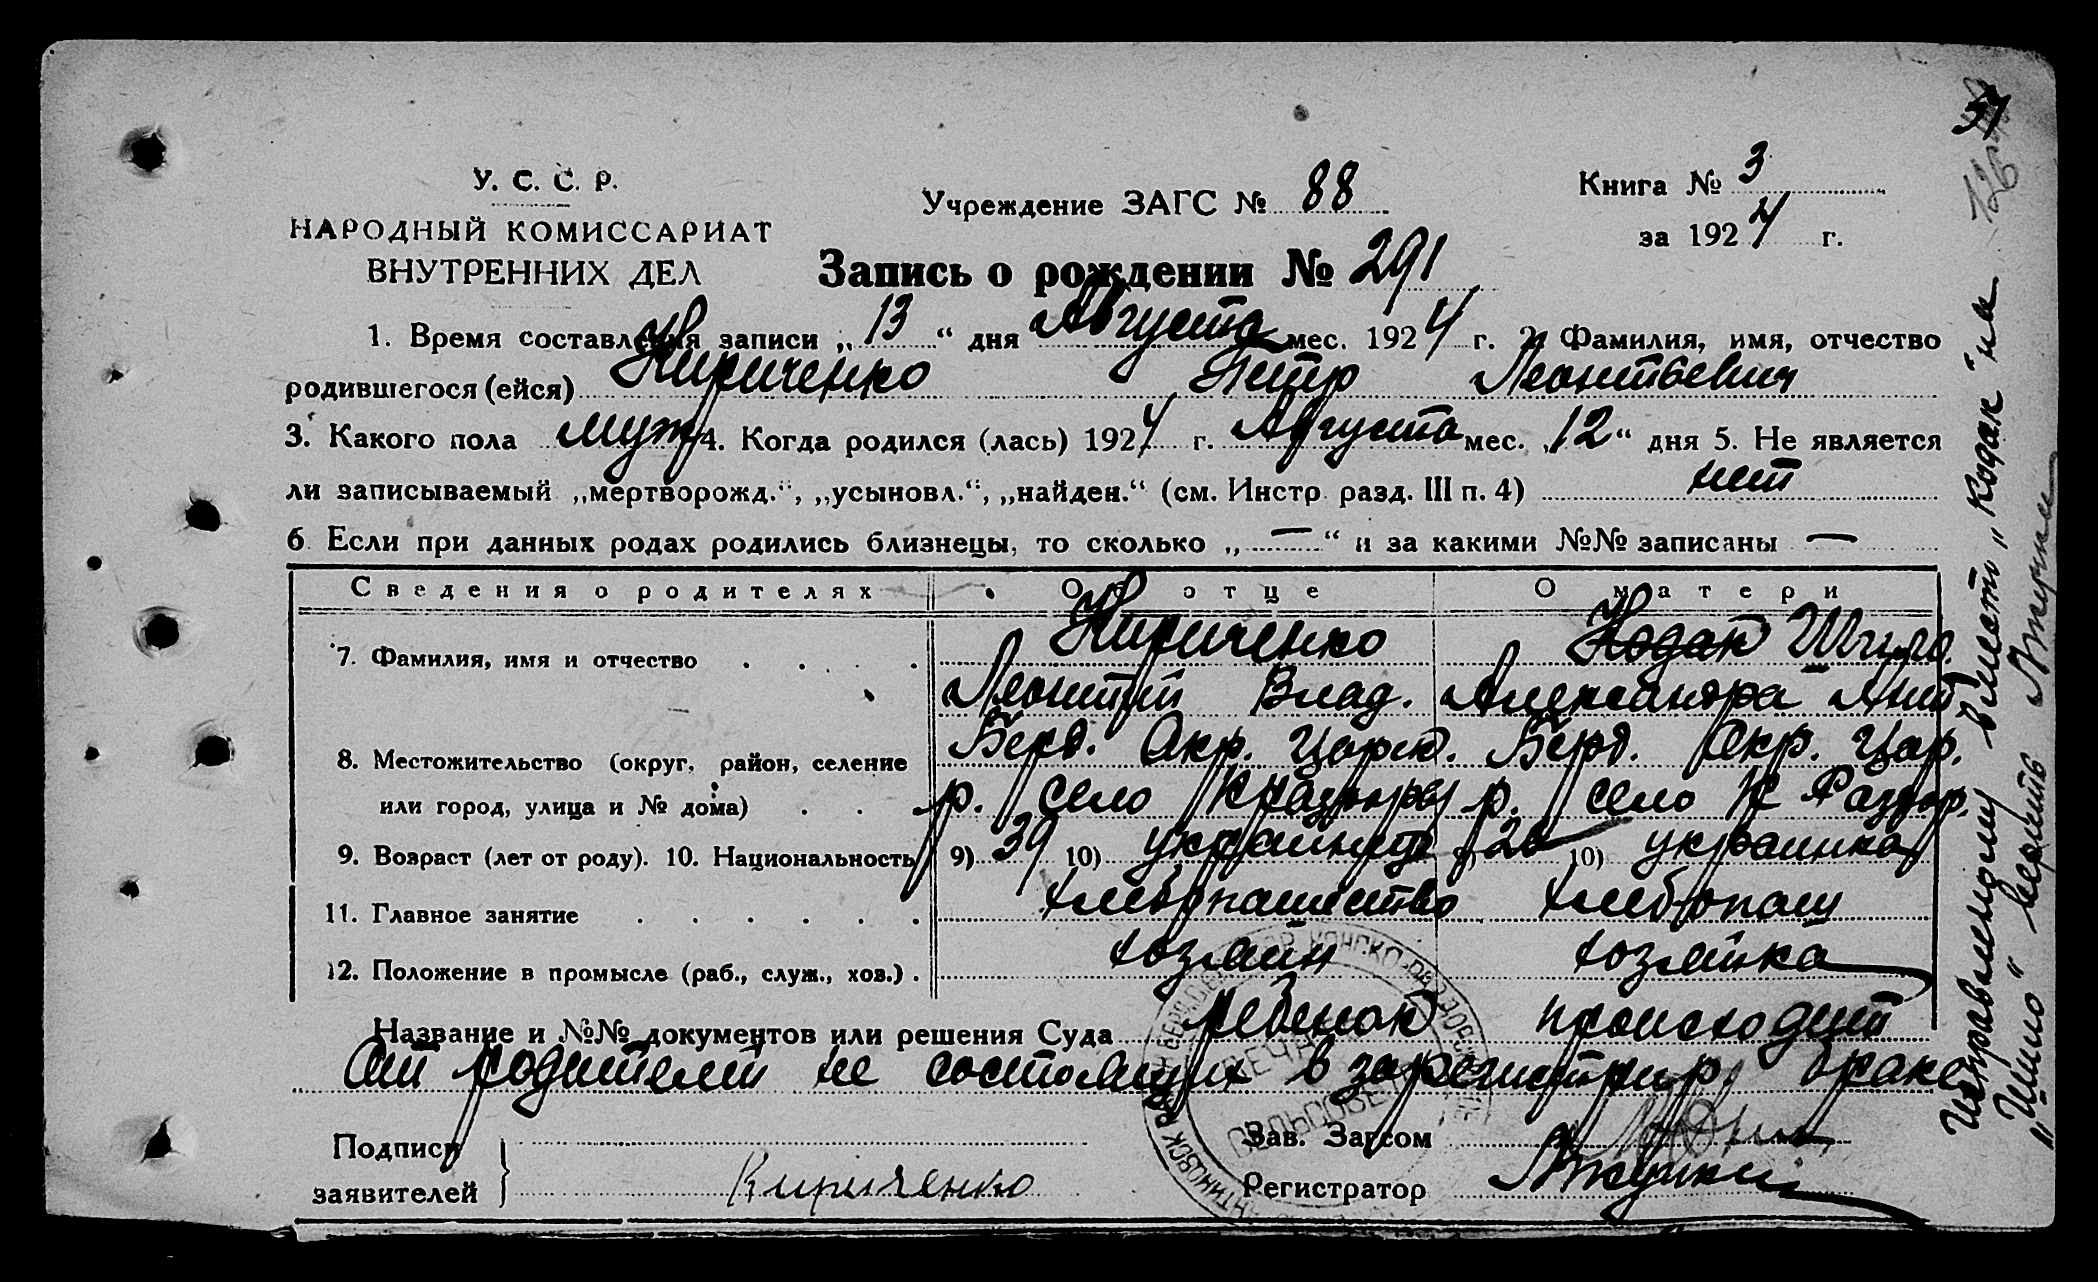 У. С. С. Р.
НАРОДНЫЙ КОМИССАРИАТ
ВНУТРЕННИХ ДЕЛ
Учреждение ЗАГС № 88
Книга № 3
за 1924 г.
37
126
Запись о рождении № 291
1. Время составления записи „13“ дня Августа мес. 1924 г. 2. Фамилия, имя, отчество
родившегося (ейся) Кириченко Петр Леонтьевич
3. Какого пола муж 4. Когда родился (лась) 1924 г. Августа мес. „12“ дня 5. Не является
ли записываемый „мертворожд.“, „усыновл.“, „найден.“ (см. Инстр. разд. III п. 4) нет
6. Если при данных родах родились близнецы, то сколько „—“ и за какими №№ записаны —
Сведения о родителях Об отце О матери
7. Фамилия, имя и отчество Кириченко Кодак Шило
Леонтий Влад. Александра
8. Местожительство (округ, район, селение Берд. Окр. Царек. Берд. Окр. Цар.
или город, улица и № дома) р. село К Раздоры р. село К Раздор.
9. Возраст (лет от роду). 10. Национальность 9) 39 10) украинец 9) 20 10) украинка
11. Главное занятие хлебопашество хлебопаш
12. Положение в промысле (раб., служ., хоз.) хозяин хозяйка
Название и №№ документов или решения Суда ребенок происходит
от родителей не состоящих в зарегистрир. браке
Подписи
заявителей Кириченко
Зав. Загсом
Регистратор
Исправленому вместо „Кодак“ на
„Шило“ верить
КОНСКО-РАЗДОР
ПЕЧАТЬ
СЕЛЬСОВЕТ